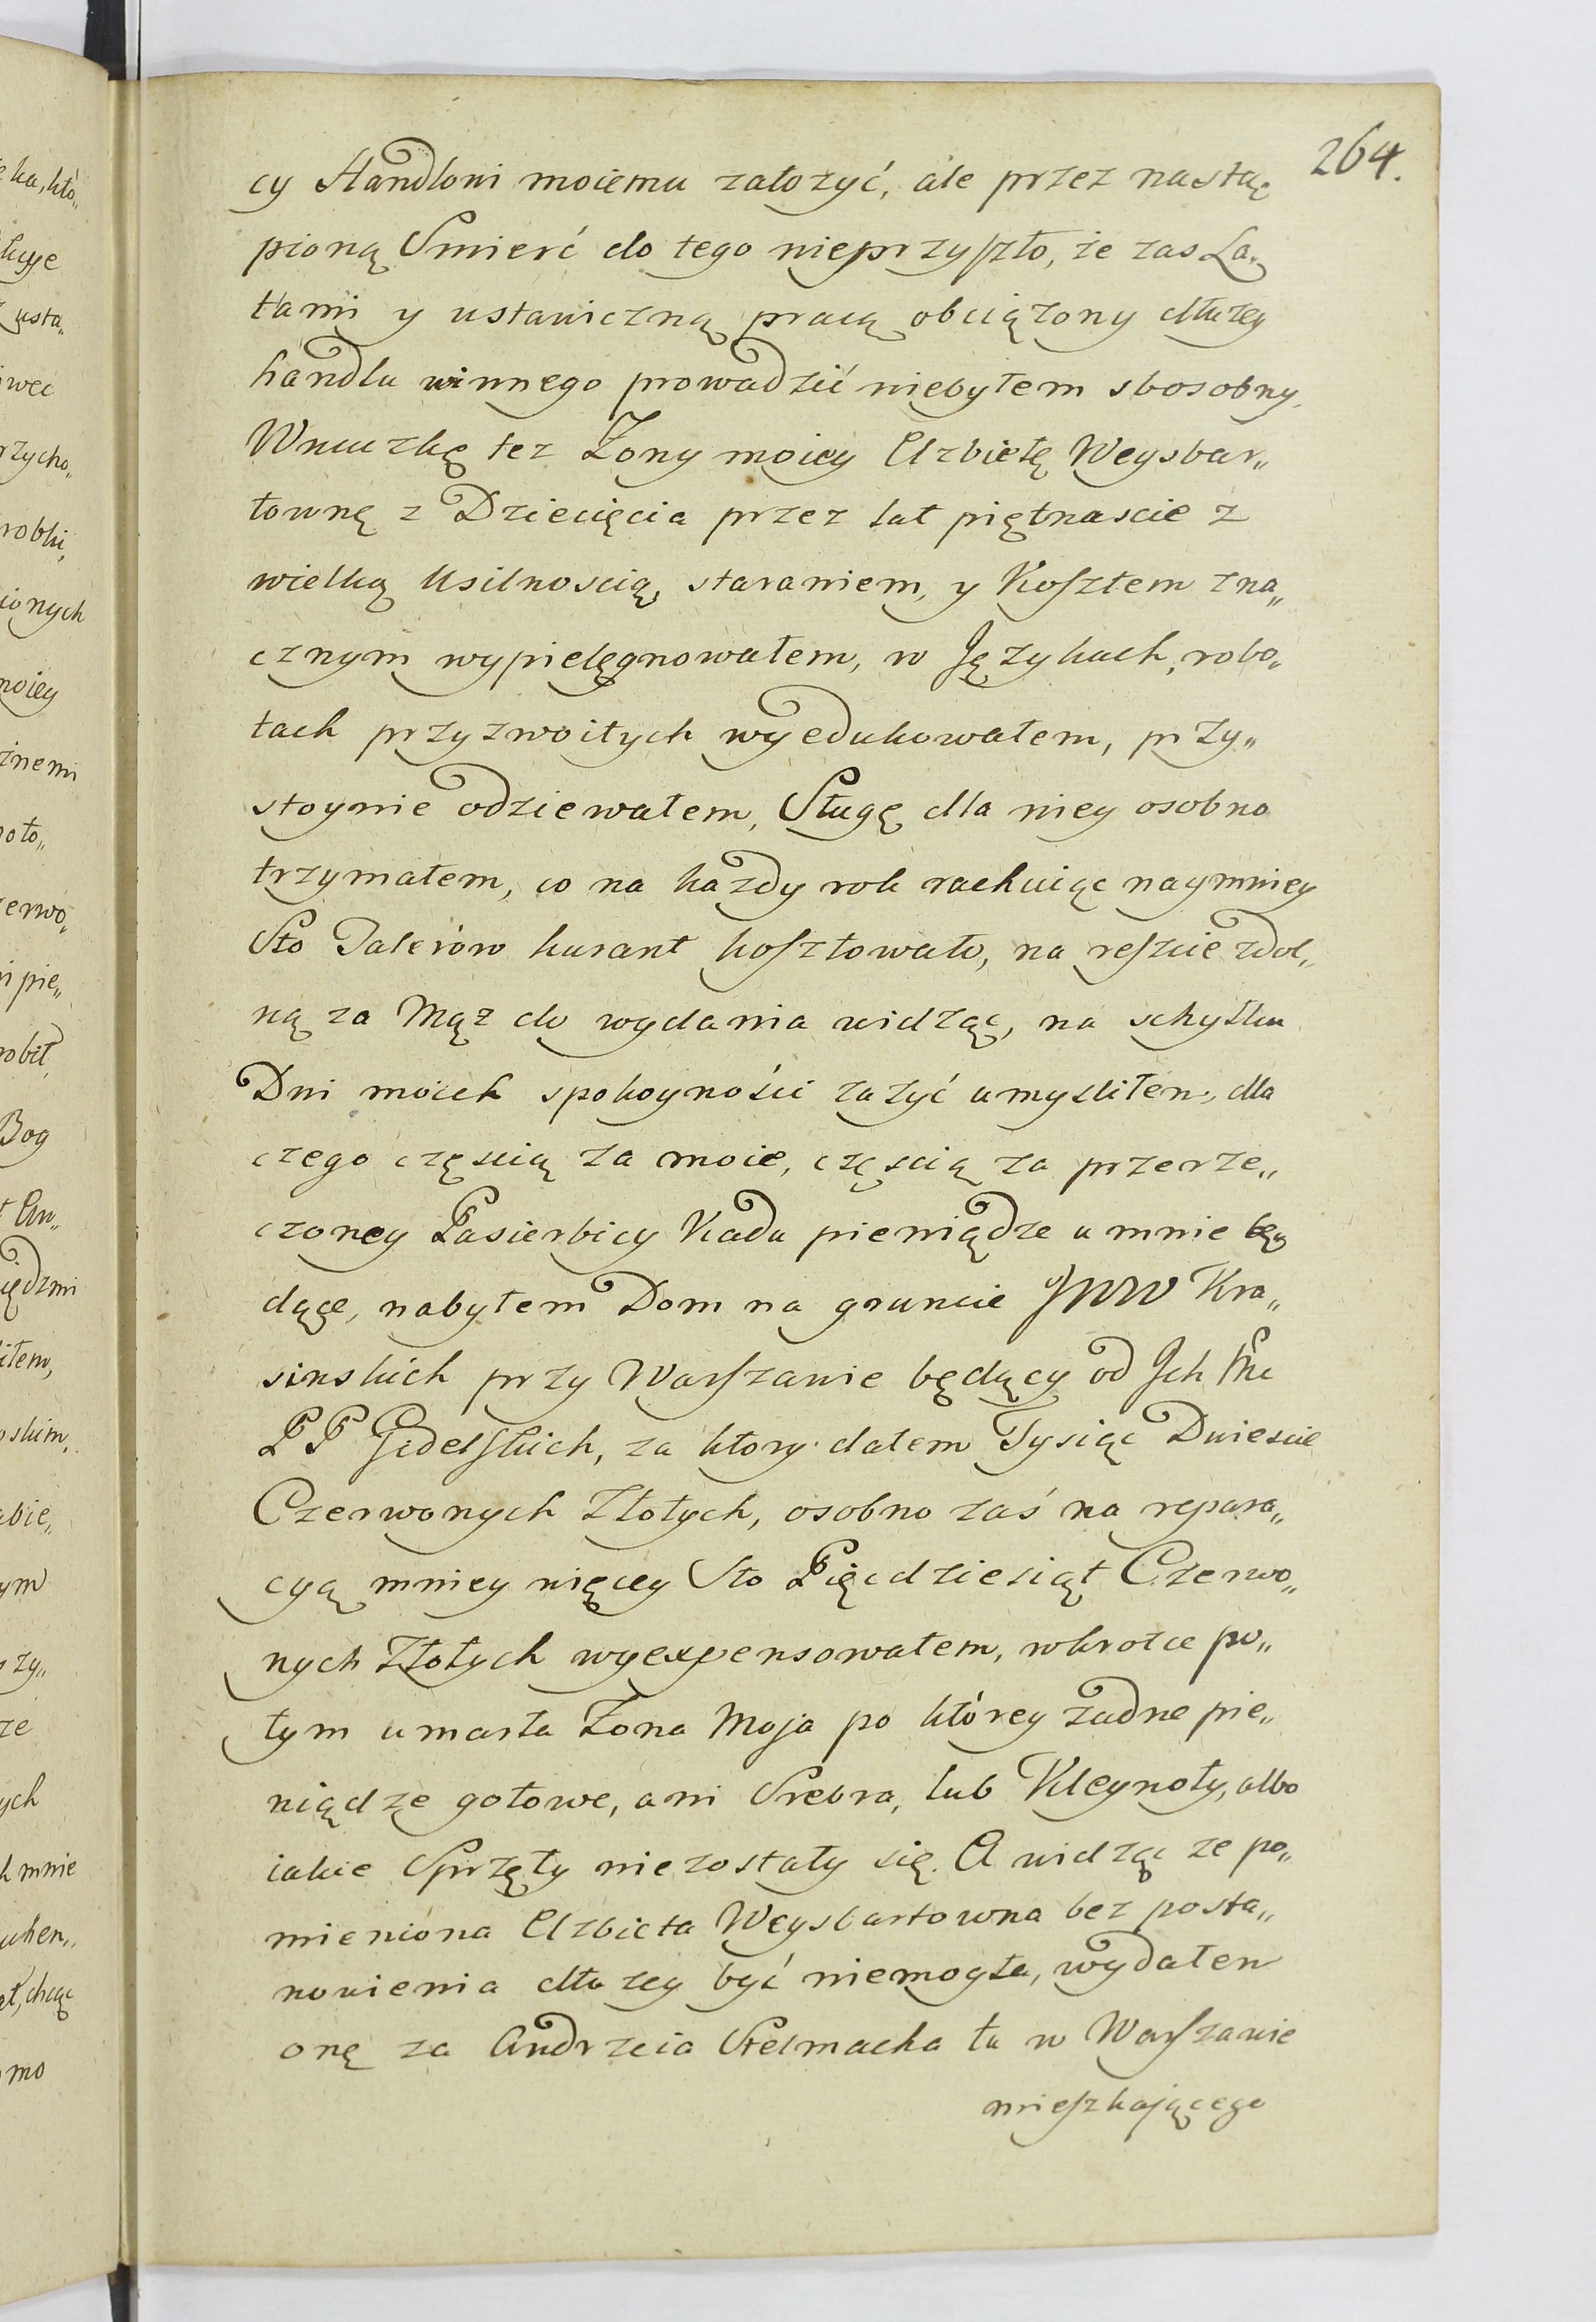 264.
cy Handlowi moiemu założyć, ale przez nastą„
pioną Smierć do tego nieprzyszło, że zas La„
tami y ustawiczną pracą obciążony dłużey
handlu winnego prowadzić niebyłem sposobny,
Wnuczkę tez Zony moiey Elzbietę Weysbar„
townę z Dziecięcia przez lat piętnascie z
wielką usilnoscią, staraniem, y Kosztem zna„
cznym wypielęgnowałem, w Językach, robo„
tach przyzwoitych wyedukowałem, przy„
stoynie odziewałem, Sługę dla niey osobno
trzymałem, co na kazdy rok rachuiąc naymniey
Sto Talerów kurant kosztowało, na reszcie zdol„
ną za Mąż do wydania widząc, na schyłku
Dni moich spokoyności zażyć umysliłem, dla
czego częscią za moie, częscią za przerze„
czoney Pasierbicy Kadu pieniądze u mnie bę„
dące, nabyłem Dom na gruncie JWW Kra„
sinskich przy Warszawie będący od Ich Mc
PP Gidelskich, za ktory dałem Tysiąc Dwiescie
Czerwonych Złotych, osobno zaś na repara„
cyą mniey więcey Sto Pięcdziesiąt Czerwo„
nych Złotych wyexpensowałem, wkrotce po„
tym umarła Żona Moja po którey żadne pie„
niądze gotowe, ani Srebra, lub Kleynoty, albo
iakie Sprzęty niezostały się. A widząc ze po„
mieniona Elzbieta Weysbartowna bez posta„
nowienia dłużey być niemogła, wydałem
onę za Andrzeia Stelmacha tu w Warszawie
mieszkającego
ka, któ„
usta„
więc
rzycho„
robki,
ionych
moiey
żnemi
oto„
erwo„
pie„
robił,
Bog
iędzmi
iłem,
oskim,
abie„
ym
szy„
ze
ych
mnie
chcąc
mo